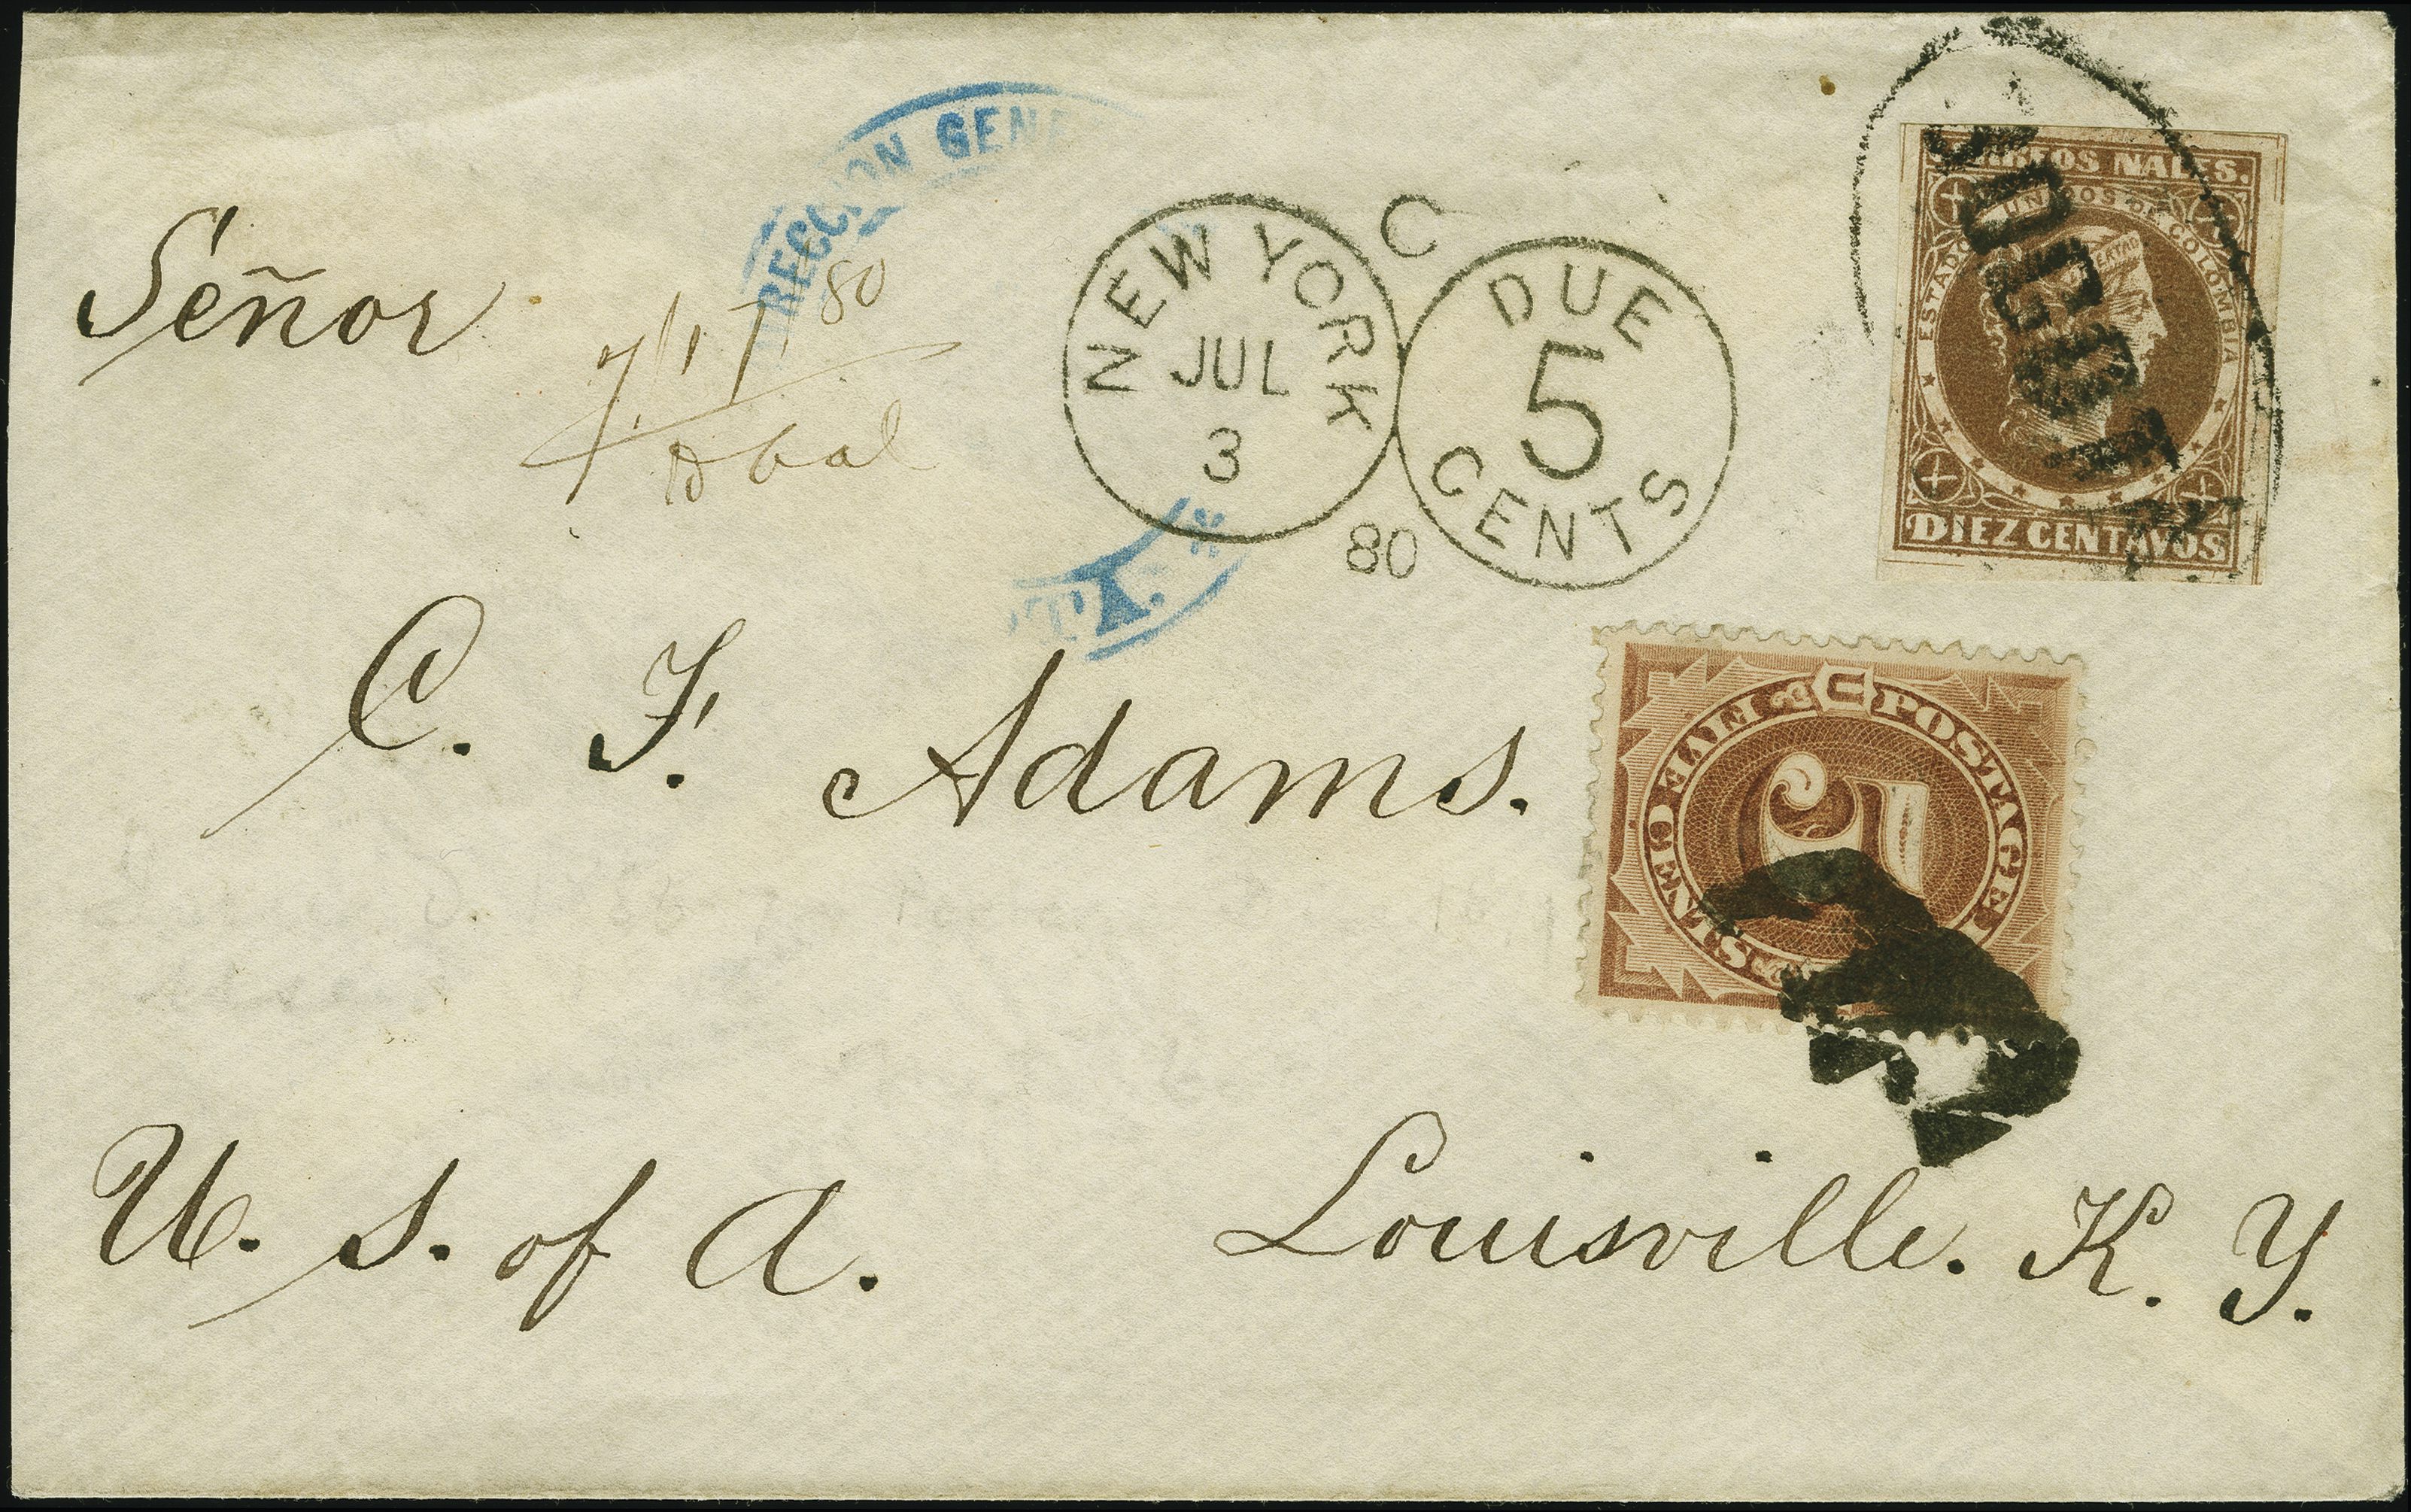 Señor
C. F. Adams.
U. S. of A. Louisville. K. Y.
7/17 80
RECCION GENE
TA.
NEW YORK
JUL
3
80
C
DUE
5
CENTS
CORREOS NALES.
ESTADOS UNIDOS DE COLOMBIA
LIBERTAD
DIEZ CENTAVOS
BOGOTA
U POSTAGE
5
FIVE CENTS